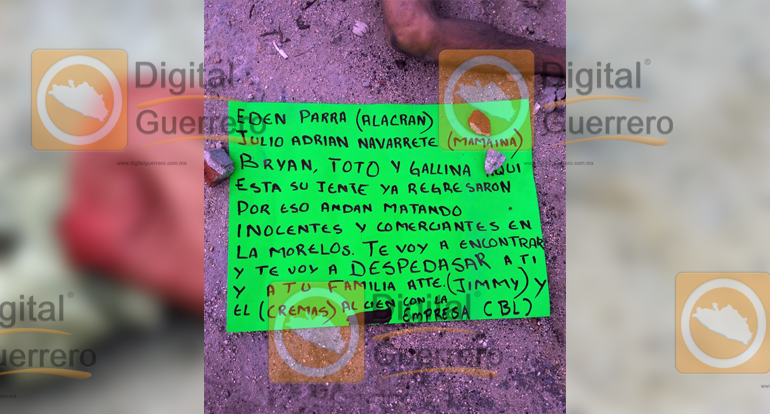 EDEN PARRA (ALACRAN)
JULIO ADRIAN NAVARRETE (MAMAINA)
BRYAN, TOTO Y GALLINA AQUI
ESTA SU JENTE YA REGRESARON
POR ESO ANDAN MATANDO
INOCENTES Y COMERCIANTES EN
LA MORELOS. TE VOY A ENCONTRAR
Y TE VOY A DESPEDASAR A TI
Y A TU FAMILIA ATTE. (JIMMY) Y
EL (CREMAS) AL CIEN CON LA
EMPRESA (BL)
Digital
Guerrero
www.digitalguerrero.com.mx
Digital
Guerrero
gital
Guerrero